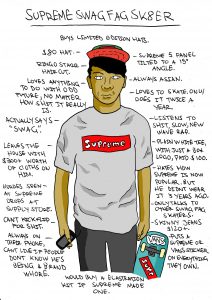 SUPREME SWAG FAG SK8ER
BOYS LIMITED EDITION HAIR.
$80 HAT.
RINGO STARR
HAIRCUT.
LOVES ANYTHING
TO DO WITH ODD
FUTURE, NO MATTER
HOW SHIT IT REALLY
IS.
ACTUALLY SAYS
"SWAG".
LEAVES THE
HOUSE WITH
$800+ WORTH
OF CLOTHS ON
HIM.
HARDLY SEEN
AT SUPREME
DROPS AT
SUPPLY STORE.
CAN'T KICKFLIP
FOR SHIT.
ALWAYS ON
THEIR PHONE.
CAN'T LIVE IF PEOPLE
DON'T KNOW HE'S
BEING A BRAND
WHORE.
SUPREME 5 PANEL
TILTED TO A 15°
ANGLE.
ALWAYS ASIAN.
LOVES TO SKATE, ONLY
DOES IT TWICE A
YEAR.
LISTENS TO
SHIT, SLOW, NEW
WAVE RAP.
PLAIN WHITE TEE,
WITH JUST A BOX
LOGO, PAID $100.
HATES HOW
SUPREME IS NOW
POPULAR. BUT
HE DIDN'T WEAR IT
3 YEARS AGO.
ONLY TALKS TO
OTHER SWAG FAG
SKATERS.
SKINNY JEANS
$120+.
PUTS A
SUPREME OR
VANS STICKER
ON EVERYTHING
THEY OWN.
WOULD BUY A
KIT IF SUPREME MADE
ONE.
Supreme
VANS